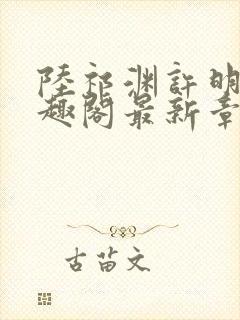 陸祁渊許明
趣阁最新章
古苗文